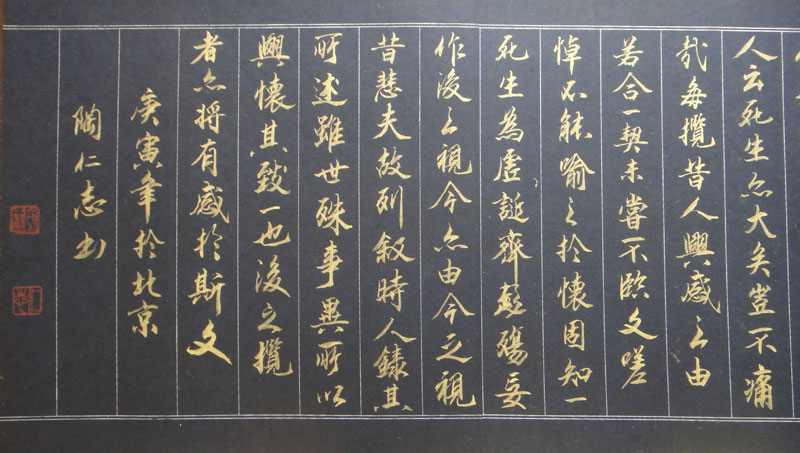 人云死生亦大矣豈不痛
哉每攬昔人興感之由
若合一契未嘗不臨文嗟
悼不能喻之於懷固知一
死生為虛誕齊彭殤妄
作後之視今亦由今之視
昔悲夫故列敘時人錄其
所述雖世殊事異所以
興懷其致一也後之攬
者亦將有感於斯文
庚寅年於北京
陶仁志书